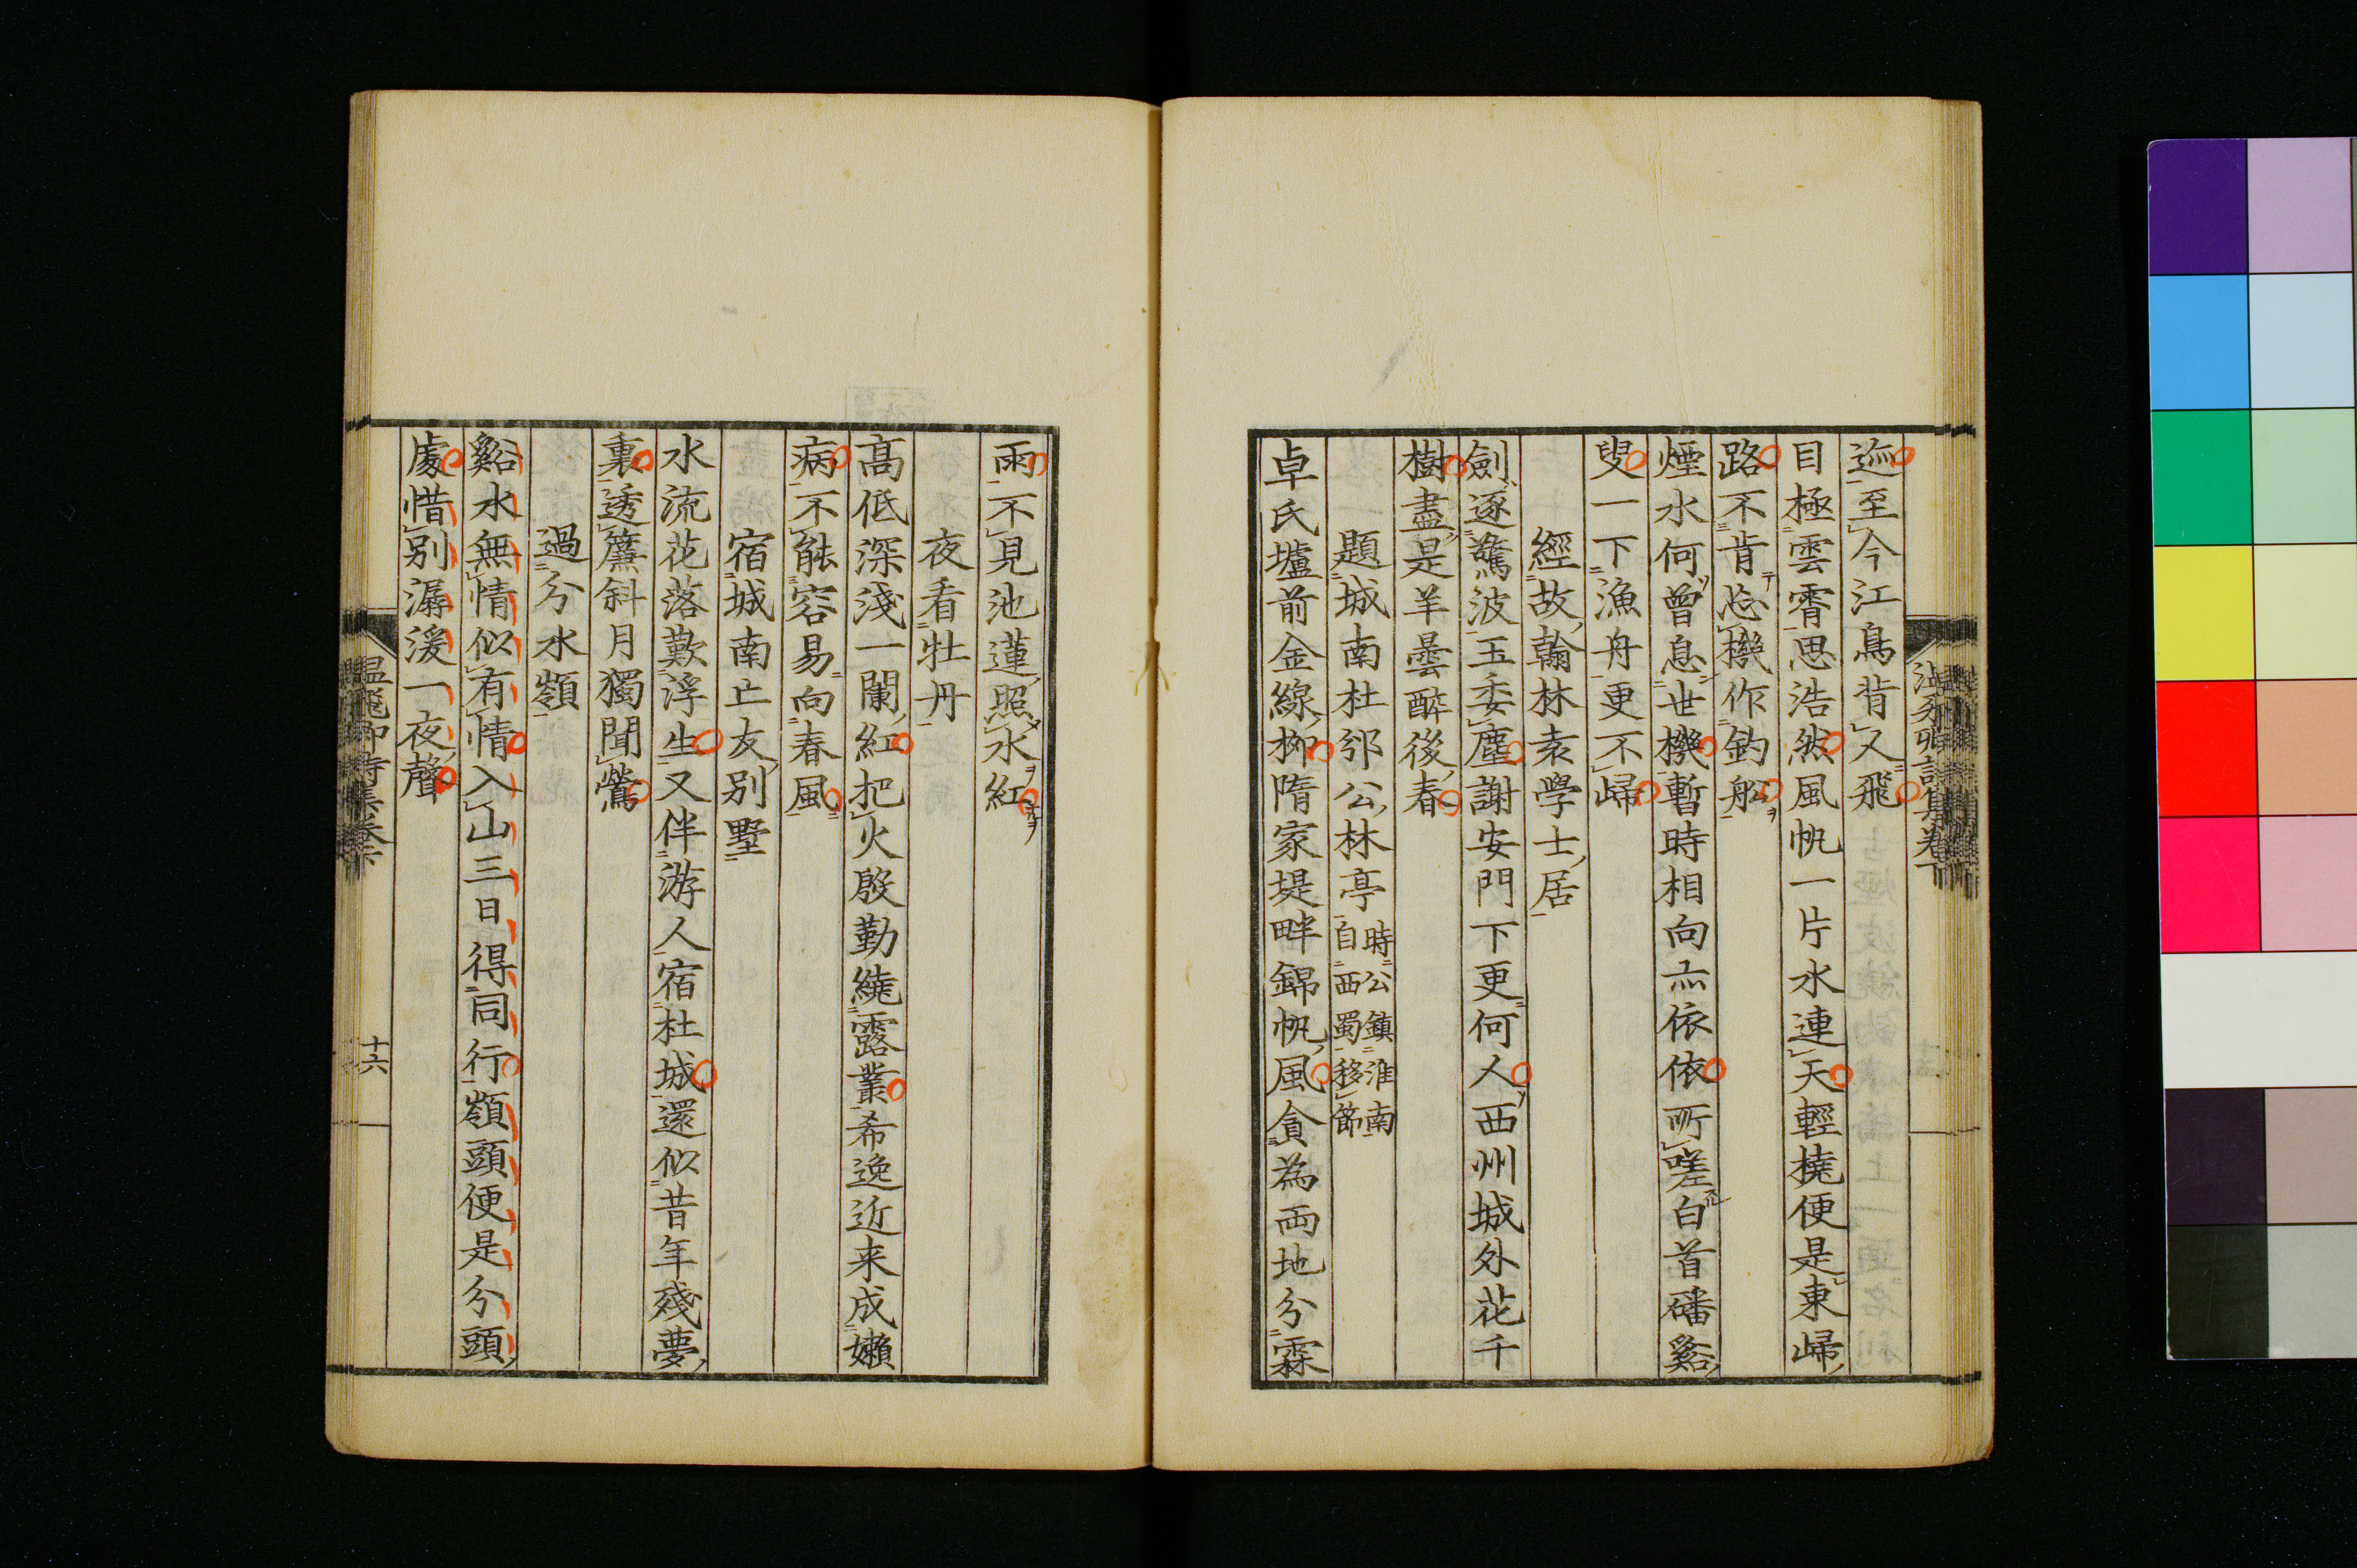 迹至今江鳥背人飛
目極雲霄思浩然風帆一片水連天輕橈便是東歸
路不肯忘機作釣船
煙水何曾息世機暫時相向亦依依所嗟白首磻谿
叟一下漁舟更不歸
經故翰林袁學士居
劍逐驚波玉委塵謝安門下更何人西州城外花千
樹盡是羊曇醉後春
題城南杜邠公林亭時公鎮淮南自西蜀移節
卓氏壚前金線柳隋家堤畔錦帆風貪為兩地分霖
雨不見池蓮照水紅
夜看牡丹
高低深淺一闌紅把火殷勤繞露叢希逸近来成嬾
病不能容易向春風
宿城南亡友別墅
水流花落歎浮生又伴游人宿杜城還似昔年殘夢
裏透簾斜月獨聞鶯
過分水嶺
谿水無情似有情入山三日得同行嶺頭便是分頭
處惜別潺湲一夜聲
溫飛卿詩集卷下
十六